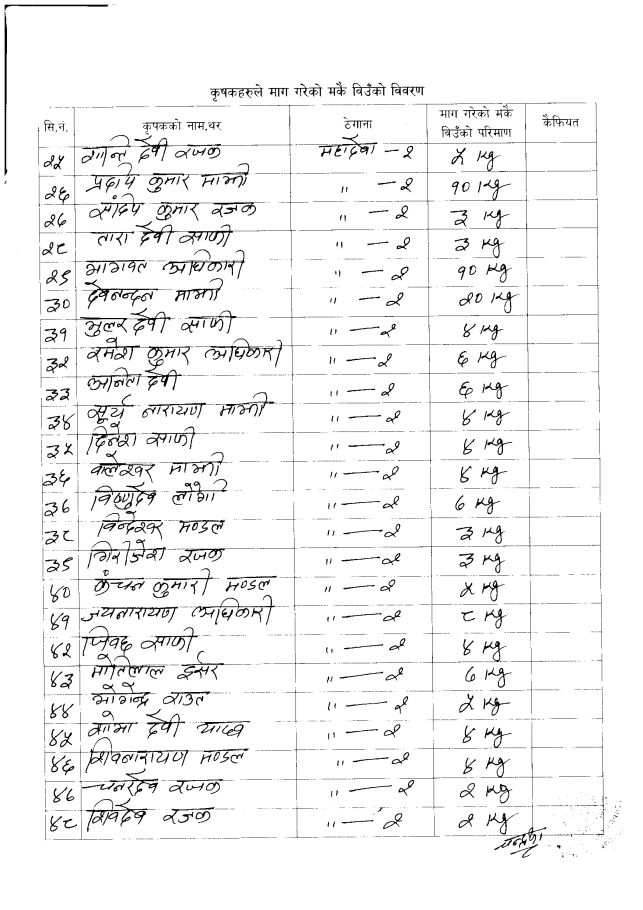 कृषकहरुले माग गरेको मकै बिउँको विवरण
सि.नं. कृषकको नाम,थर ठेगाना माग गरेको मकै बिउँको परिमाण कैफियत
२५ शान्ति देवी रजक महादेवा - २ ५ kg
२६ प्रदीप कुमार माझी " - २ १० kg
२७ सांदीप कुमार रजक " - २ ३ kg
२८ तारा देवी साफी " - २ ३ kg
२९ भागवत अधिकारी " - २ १० kg
३० देवनन्दन माझी " - २ २० kg
३१ भुलर देवी साफी " - २ ४ kg
३२ रमेश कुमार अधिकारी " - २ ६ kg
३३ अनिता देवी " - २ ६ kg
३४ सूर्य नारायण माझी " - २ ४ kg
३५ दिनेश साफी " - २ ४ kg
३६ वालेश्वर माझी " - २ ४ kg
३७ विष्णुदेव " - २ ७ kg
३८ विन्देश्वर मण्डल " - २ ३ kg
३९ गिरीजेश रजक " - २ ३ kg
४० कंचन कुमारी मण्डल " - २ ५ kg
४१ जयनारायण अधिकारी " - २ ८ kg
४२ साफी " - २ ४ kg
४३ मोतिलाल ईसर " - २ ७ kg
४४ भोगेन्द्र राउत " - २ ५ kg
४५ शोभा देवी यादव " - २ ४ kg
४६ शिवनारायण मण्डल " - २ ४ kg
४७ चनरदेव रजक " - २ २ kg
४८ शिवदेव रजक " - २ २ kg